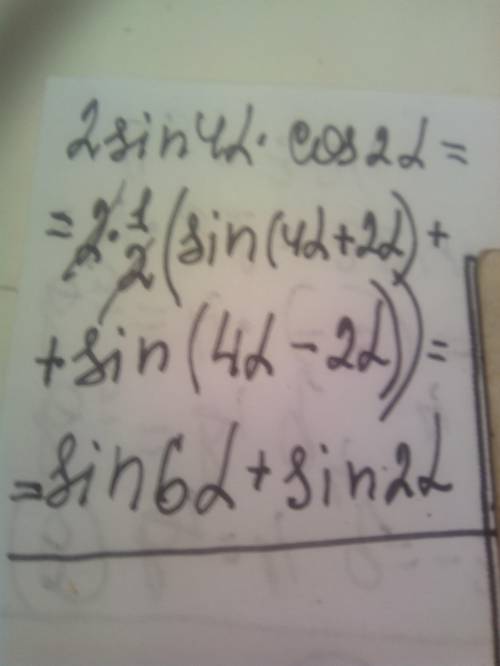 2sin4α · cos2α =
= 2 · 1/2 (sin(4α+2α) +
+ sin(4α - 2α)) =
= sin6α + sin2α